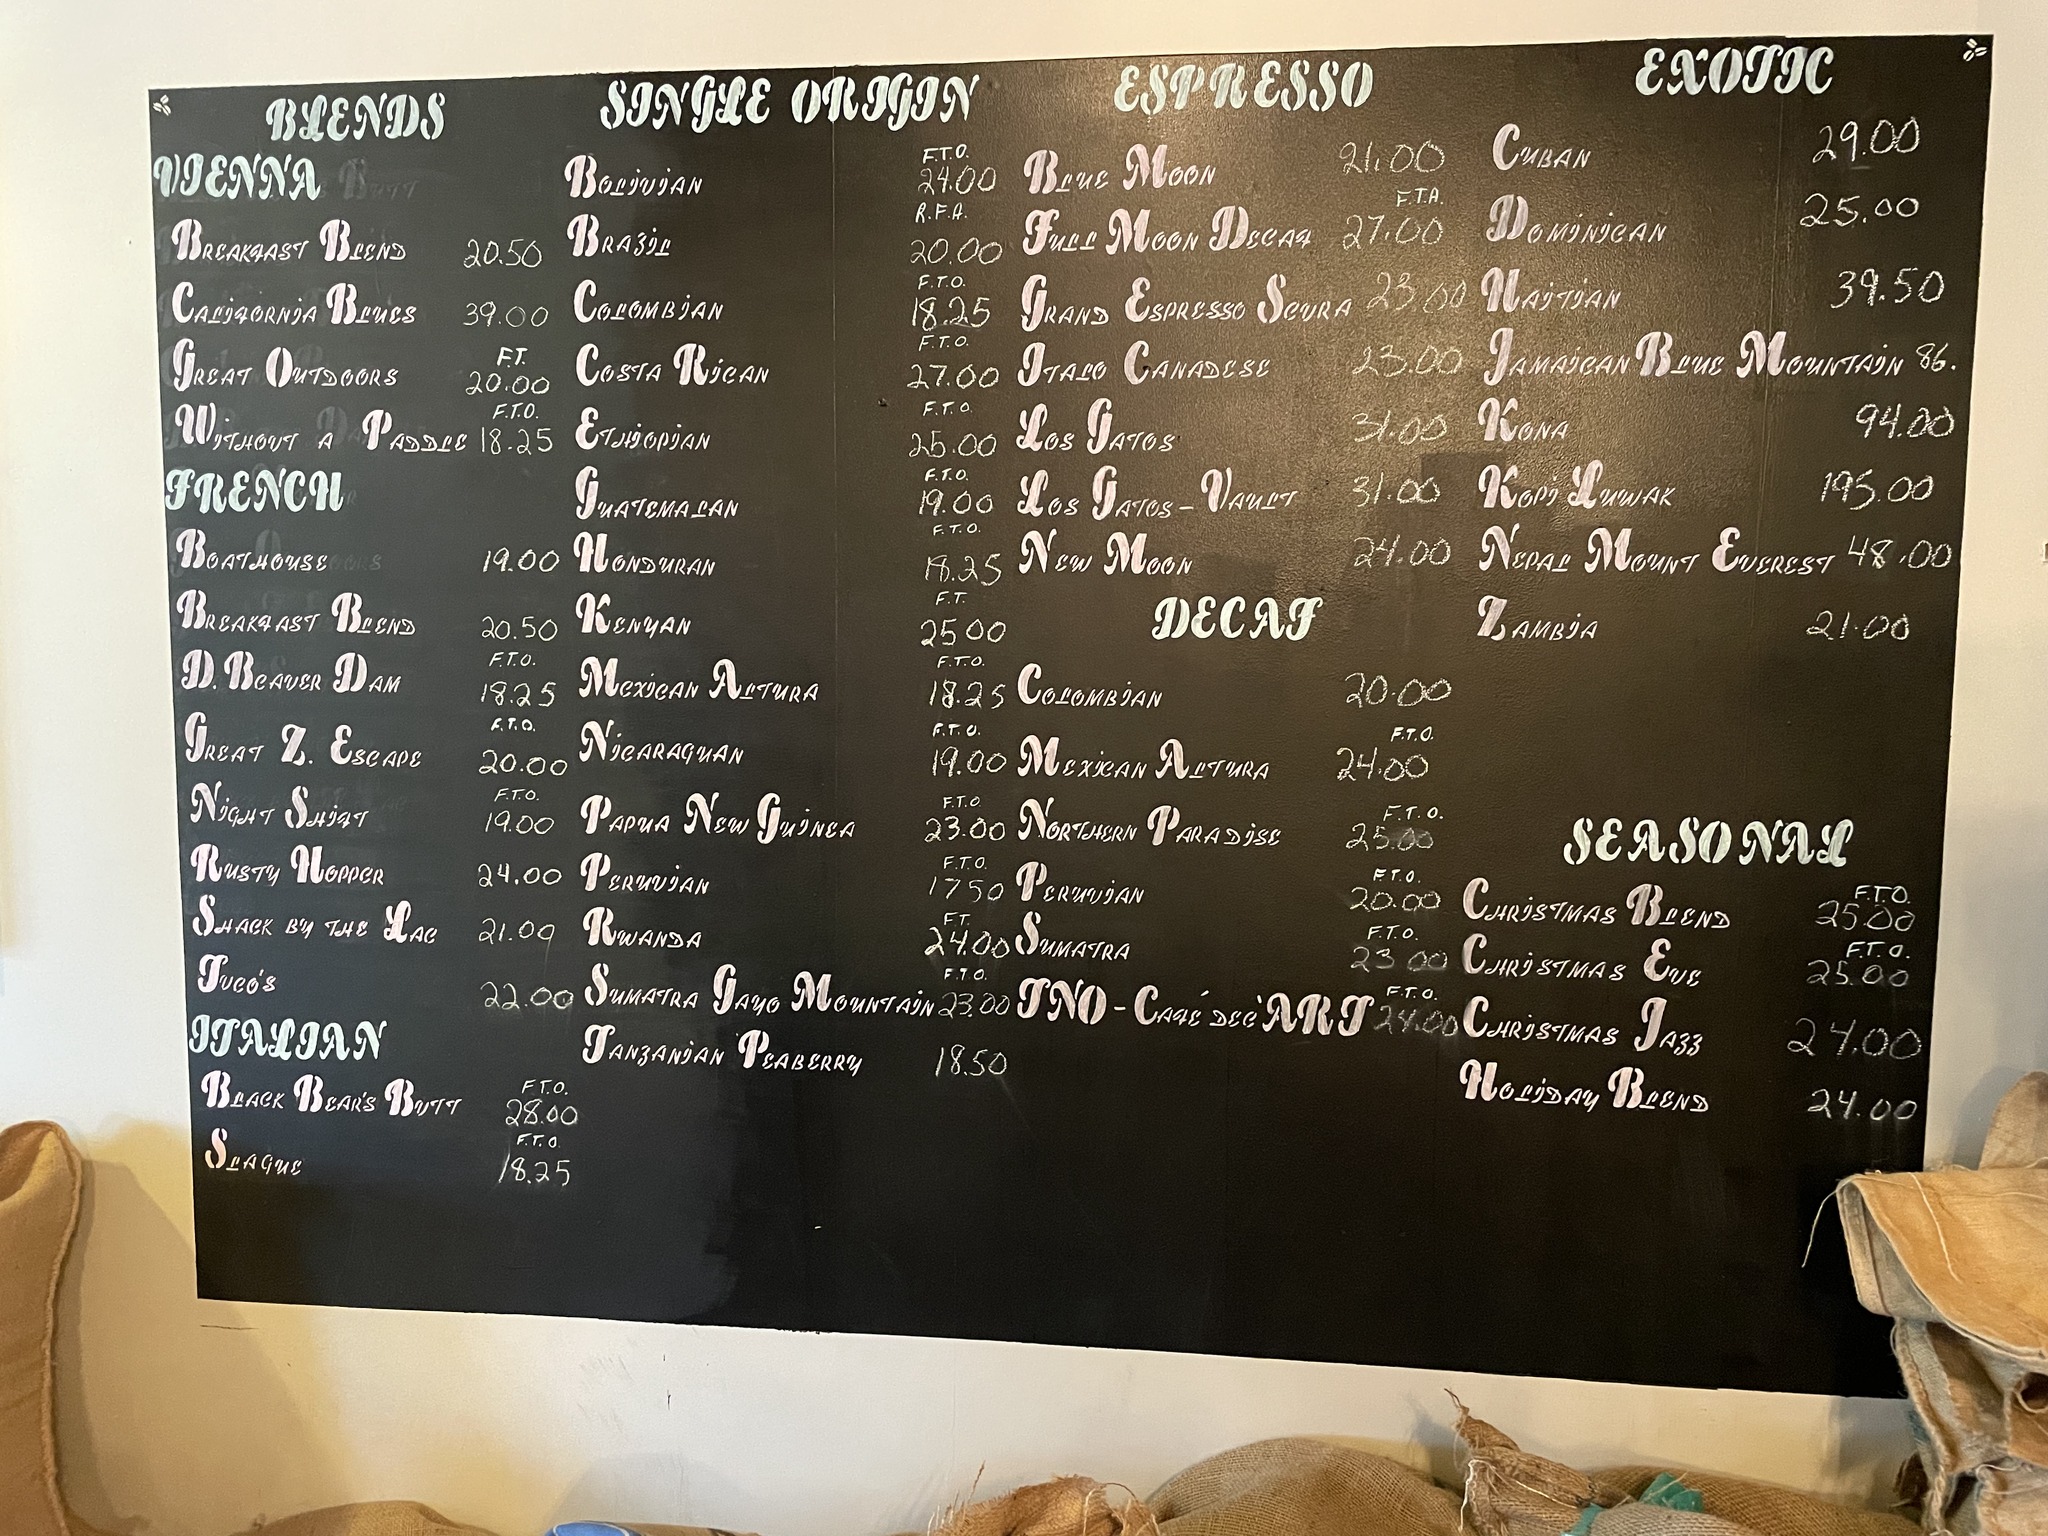 BLENDS
VIENNA
BREAKFAST BLEND 20.50
CALIFORNIA BLUES 39.00
F.T.
GREAT OUTDOORS 20.00
F.T.O.
WITHOUT A PADDLE 18.25
FRENCH
BOATHOUSE 19.00
BREAKFAST BLEND 20.50
F.T.O.
D. BEAVER DAM 18.25
F.T.O.
GREAT Z. ESCAPE 20.00
F.T.O.
NIGHT SHIFT 19.00
RUSTY HOPPER 24.00
SHACK BY THE LAC 21.00
TUCO'S 22.00
ITALIAN
F.T.O.
BLACK BEAR'S BUTT 28.00
F.T.O.
SLAGUE 18.25
SINGLE ORIGIN
F.T.O.
BOLIVIAN 24.00
R.F.A.
BRAZIL 20.00
F.T.O.
COLOMBIAN 18.25
F.T.O.
COSTA RICAN 27.00
F.T.O.
ETHIOPIAN 25.00
F.T.O.
GUATEMALAN 19.00
F.T.O.
HONDURAN 18.25
F.T.
KENYAN 25 00
F.T.O.
MEXICAN ALTURA 18.25
F.T.O.
NICARAGUAN 19.00
F.T.O.
PAPUA NEW GUINEA 23.00
F.T.O.
PERUVIAN 17 50
F.T.
RWANDA 24.00
F.T.O.
SUMATRA GAYO MOUNTAIN 23.00
TANZANIAN PEABERRY 18.50
ESPRESSO
BLUE MOON 21.00
F.T.A.
FULL MOON DECAF 27.00
GRAND ESPRESSO SCURA 23.00
ITALO CANADESE 23.00
LOS GATOS 31.00
LOS GATOS - VAULT 31.00
NEW MOON 24.00
DECAF
COLOMBIAN 20.00
F.T.O.
MEXICAN ALTURA 24.00
F.T.O.
NORTHERN PARADISE 25.00
F.T.O.
PERUVIAN 20.00
F.T.O.
SUMATRA 23 00
F.T.O.
TNO - CAFÉ DEC'ART 24.00
EXOTIC
CUBAN 29.00
DOMINICAN 25.00
HAITIAN 39.50
JAMAICAN BLUE MOUNTAIN 86.
KONA 94.00
KOPI LUWAK 195.00
NEPAL MOUNT EVEREST 48.00
ZAMBIA 21.00
SEASONAL
F.T.O.
CHRISTMAS BLEND 25.00
F.T.O.
CHRISTMAS EVE 25.00
CHRISTMAS JAZZ 24.00
HOLIDAY BLEND 24.00